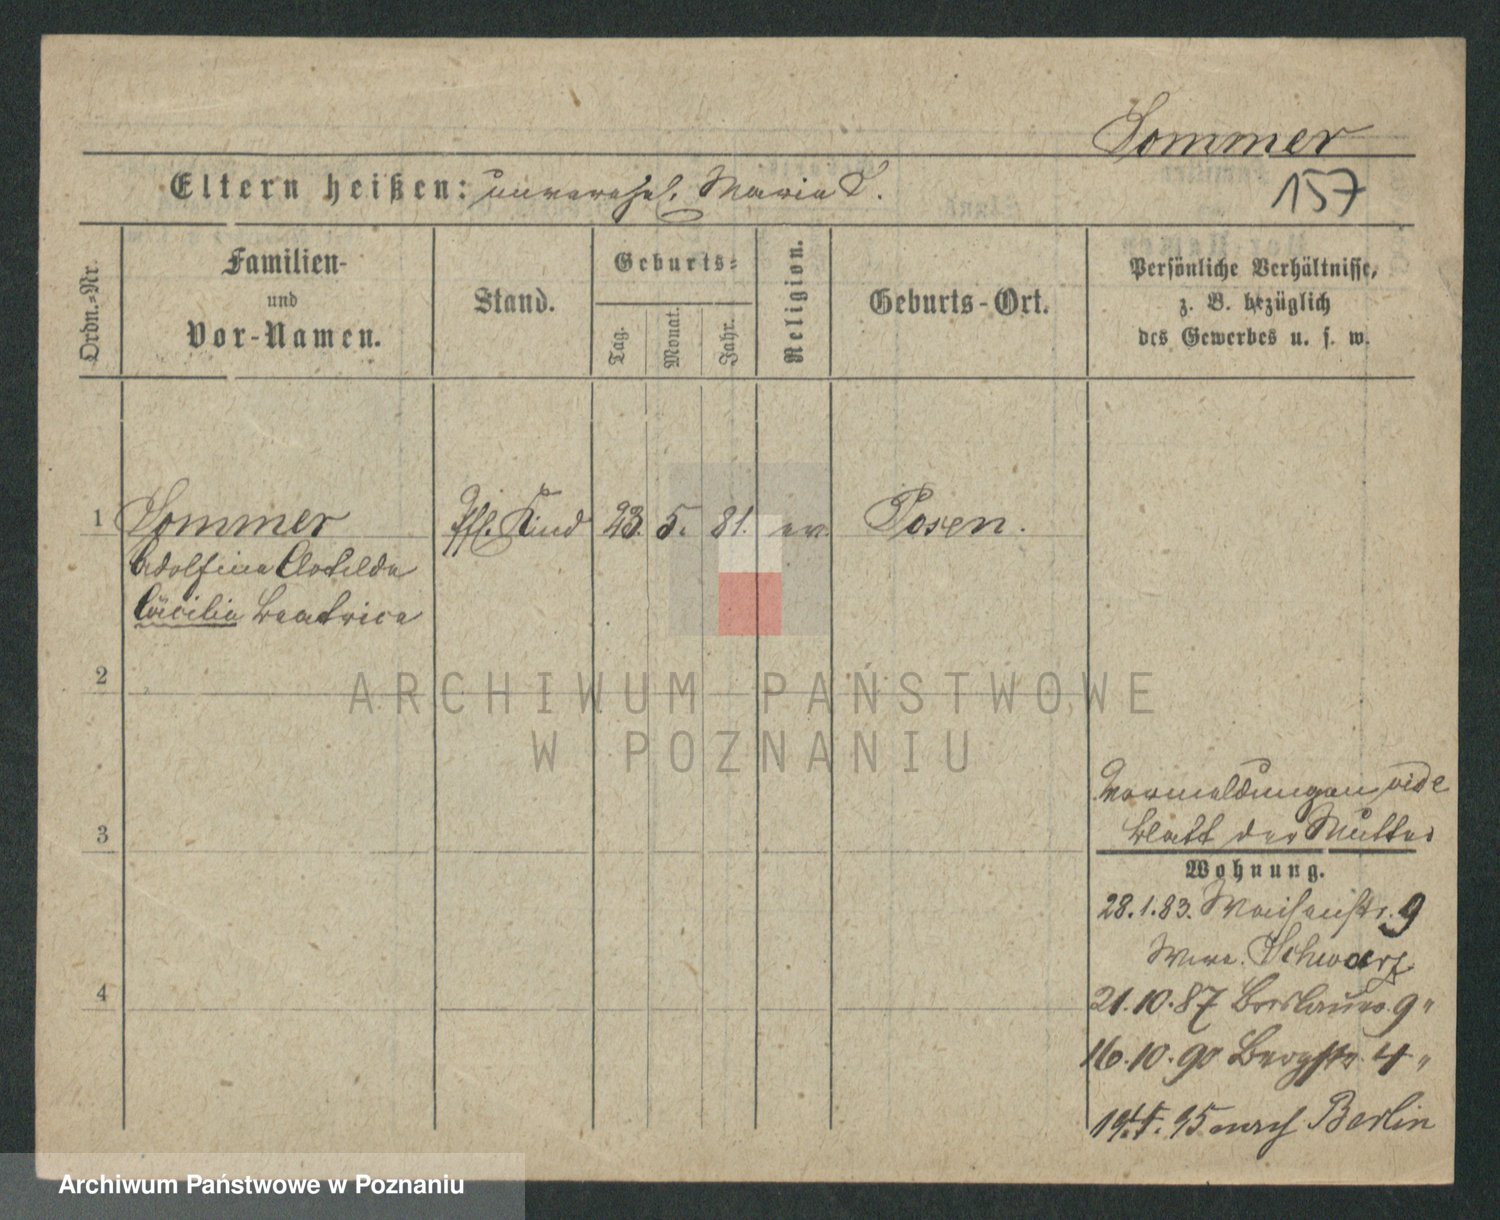 Sommer
157
Eltern heißen: unverehel. Maria S.
Ordn.-Nr.
Familien-
und
Vor-Namen.
Stand.
Geburts-
Tag.
Monat.
Jahr.
Religion.
Geburts-Ort.
Persönliche Verhältnisse,
z. B. bezüglich
des Gewerbes u. s. w.
1 Sommer Kind 23. 5. 81. ev. Posen.
Adolfine Clotilde
Cäcilie Beatrice
2
ARCHIWUM PAŃSTWOWE
W POZNANIU
Vermeldungen vide
3 Blatt der Mutter
Wohnung.
28.1.83. Waisenstr. 9
Schwarz
4 21.10.87 Breslauer 9 "
16.10.90 Bergstr 4 "
95 nach Berlin
Archiwum Państwowe w Poznaniu